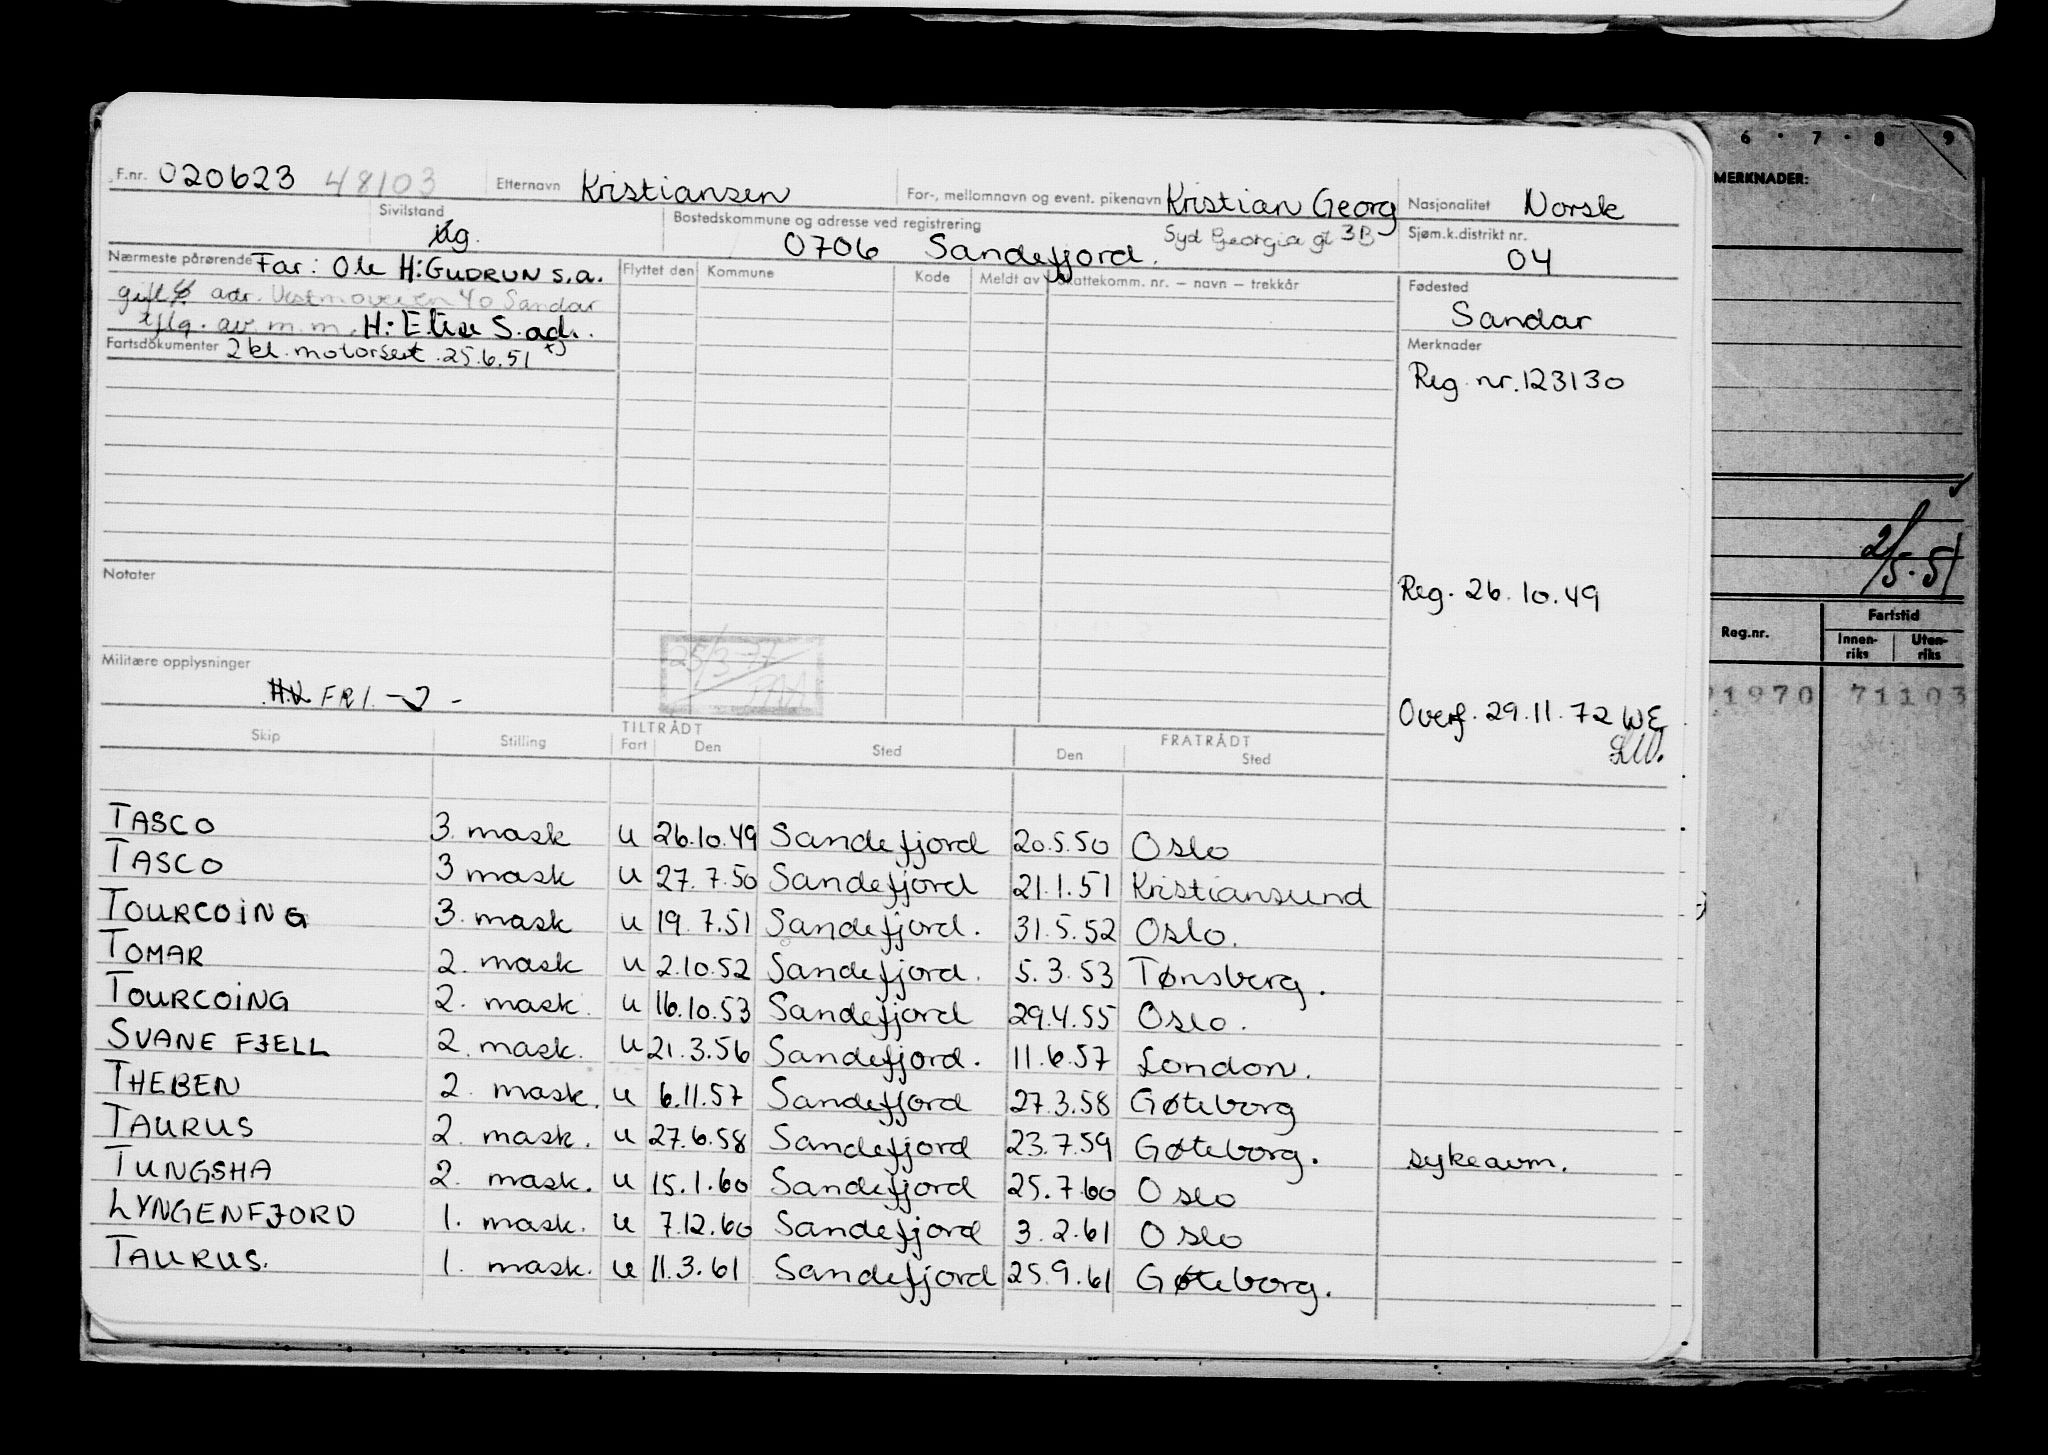 F.nr. 020623 48103 Etternavn Kristiansen For-, mellomnavn og event. pikenavn Kristian Georg Nasjonalitet Norsk
Sivilstand ug. Bostedskommune og adresse ved registrering 0706 Sandefjord. Syd Georgia gt 3B Sjøm.k.distrikt nr. 04
Nærmeste pårørende Far: Ole H: GUDRUN s.a. Flyttet den Kommune Kode Meldt av Skattekomm. nr. – navn – trekkår Fødested
gift adr. Vestmoveien 40 Sandar
Sandar
iflg. av. m.m. H: Elise S. adr.
Fartsdokumenter 2 kl. motorsert. 25.6.51
Merknader
Reg. nr. 123130
Notater
Reg. 26.10.49
Militære opplysninger
H.V FRI
25/3-77
Overf. 29.11.72 WE
Skip Stilling TILTRÅDT Fart Den Sted FRATRÅDT Den Sted
TASCO 3. mask u 26.10.49 Sandefjord 20.5.50 Oslo
TASCO 3 mask u 27.7.50 Sandefjord 21.1.51 Kristiansund
TOURCOING 3. mask u 19.7.51 Sandefjord. 31.5.52 Oslo.
TOMAR 2. mask u 2.10.52 Sandefjord. 5.3.53 Tønsberg.
TOURCOING 2. mask. u 16.10.53 Sandefjord 29.4.55 Oslo.
SVANE FJELL 2. mask. u 21.3.56 Sandefjord. 11.6.57 London.
THEBEN 2. mask. u 6.11.57 Sandefjord 27.3.58 Gøteborg
TAURUS 2. mask. u 27.6.58 Sandefjord 23.7.59 Gøteborg. sykeavm.
TUNGSHA 2. mask. u 15.1.60 Sandefjord 25.7.60 Oslo
LYNGENFJORD 1. mask. u 7.12.60 Sandefjord 3.2.61 Oslo
TAURUS. 1. mask. u 11.3.61 Sandefjord 25.9.61 Gøteborg.
6 · 7 · 8 9
MERKNADER:
2/5-51
Reg.nr. Fartstid
Innenriks Utenriks
21970 71103